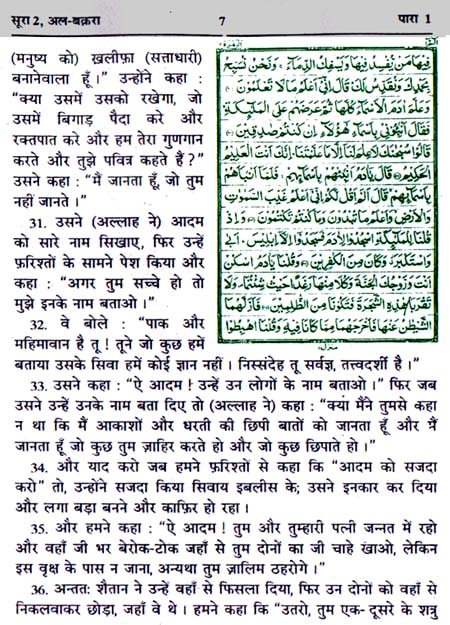 सूरा 2, अल-बक़रा
7
पारा 1
(मनुष्य को) ख़लीफ़ा (सत्ताधारी)
बनानेवाला हूँ।" उन्होंने कहा :
"क्या उसमें उसको रखेगा, जो
उसमें बिगाड़ पैदा करे और
रक्तपात करे और हम तेरा गुणगान
करते और तुझे पवित्र कहते हैं?"
उसने कहा : "मैं जानता हूँ, जो तुम
नहीं जानते ।"
31. उसने (अल्लाह ने) आदम
को सारे नाम सिखाए, फिर उन्हें
फ़रिश्तों के सामने पेश किया और
कहा : "अगर तुम सच्चे हो तो
मुझे इनके नाम बताओ ।"
32. वे बोले : "पाक और
महिमावान है तू ! तूने जो कुछ हमें
فِيهَا مَنْ يُفْسِدُ فِيهَا وَيَسْفِكُ الدِّمَاءَ وَنَحْنُ نُسَبِّحُ
بِحَمْدِكَ وَنُقَدِّسُ لَكَ قَالَ إِنِّي أَعْلَمُ مَا لَا تَعْلَمُونَ
وَعَلَّمَ آدَمَ الْأَسْمَاءَ كُلَّهَا ثُمَّ عَرَضَهُمْ عَلَى الْمَلٰٓئِكَةِ
فَقَالَ أَنْبِئُونِي بِأَسْمَاءِ هٰٓؤُلَاءِ إِنْ كُنْتُمْ صٰدِقِينَ
قَالُوا سُبْحٰنَكَ لَا عِلْمَ لَنَا إِلَّا مَا عَلَّمْتَنَا إِنَّكَ أَنْتَ الْعَلِيمُ
الْحَكِيمُ قَالَ يٰٓاٰدَمُ أَنْبِئْهُمْ بِأَسْمَائِهِمْ فَلَمَّا أَنْبَأَهُمْ
بِأَسْمَائِهِمْ قَالَ أَلَمْ أَقُلْ لَكُمْ إِنِّي أَعْلَمُ غَيْبَ السَّمٰوٰتِ
وَالْأَرْضِ وَأَعْلَمُ مَا تُبْدُونَ وَمَا كُنْتُمْ تَكْتُمُونَ وَإِذْ
قُلْنَا لِلْمَلٰٓئِكَةِ اسْجُدُوا لِآدَمَ فَسَجَدُوا إِلَّا إِبْلِيسَ أَبَى
وَاسْتَكْبَرَ وَكَانَ مِنَ الْكٰفِرِينَ وَقُلْنَا يٰٓاٰدَمُ اسْكُنْ
أَنْتَ وَزَوْجُكَ الْجَنَّةَ وَكُلَا مِنْهَا رَغَدًا حَيْثُ شِئْتُمَا وَلَا
تَقْرَبَا هٰذِهِ الشَّجَرَةَ فَتَكُونَا مِنَ الظّٰلِمِينَ فَأَزَلَّهُمَا
الشَّيْطٰنُ عَنْهَا فَأَخْرَجَهُمَا مِمَّا كَانَا فِيهِ وَقُلْنَا اهْبِطُوا
बताया उसके सिवा हमें कोई ज्ञान नहीं । निस्संदेह तू सर्वज्ञ, तत्त्वदर्शी है ।"
33. उसने कहा : "ऐ आदम ! उन्हें उन लोगों के नाम बताओ ।" फिर जब
उसने उन्हें उनके नाम बता दिए तो (अल्लाह ने) कहा : "क्या मैंने तुमसे कहा
न था कि मैं आकाशों और धरती की छिपी बातों को जानता हूँ और मैं
जानता हूँ जो कुछ तुम ज़ाहिर करते हो और जो कुछ छिपाते हो ।"
34. और याद करो जब हमने फ़रिश्तों से कहा कि "आदम को सजदा
करो" तो, उन्होंने सजदा किया सिवाय इबलीस के; उसने इनकार कर दिया
और लगा बड़ा बनने और काफ़िर हो रहा ।
35. और हमने कहा : "ऐ आदम ! तुम और तुम्हारी पत्नी जन्नत में रहो
और वहाँ जी भर बेरोक-टोक जहाँ से तुम दोनों का जी चाहे खाओ, लेकिन
इस वृक्ष के पास न जाना, अन्यथा तुम ज़ालिम ठहरोगे ।"
36. अन्ततः शैतान ने उन्हें वहाँ से फिसला दिया, फिर उन दोनों को वहाँ से
निकलवाकर छोड़ा, जहाँ वे थे । हमने कहा कि "उतरो, तुम एक- दूसरे के शत्रु